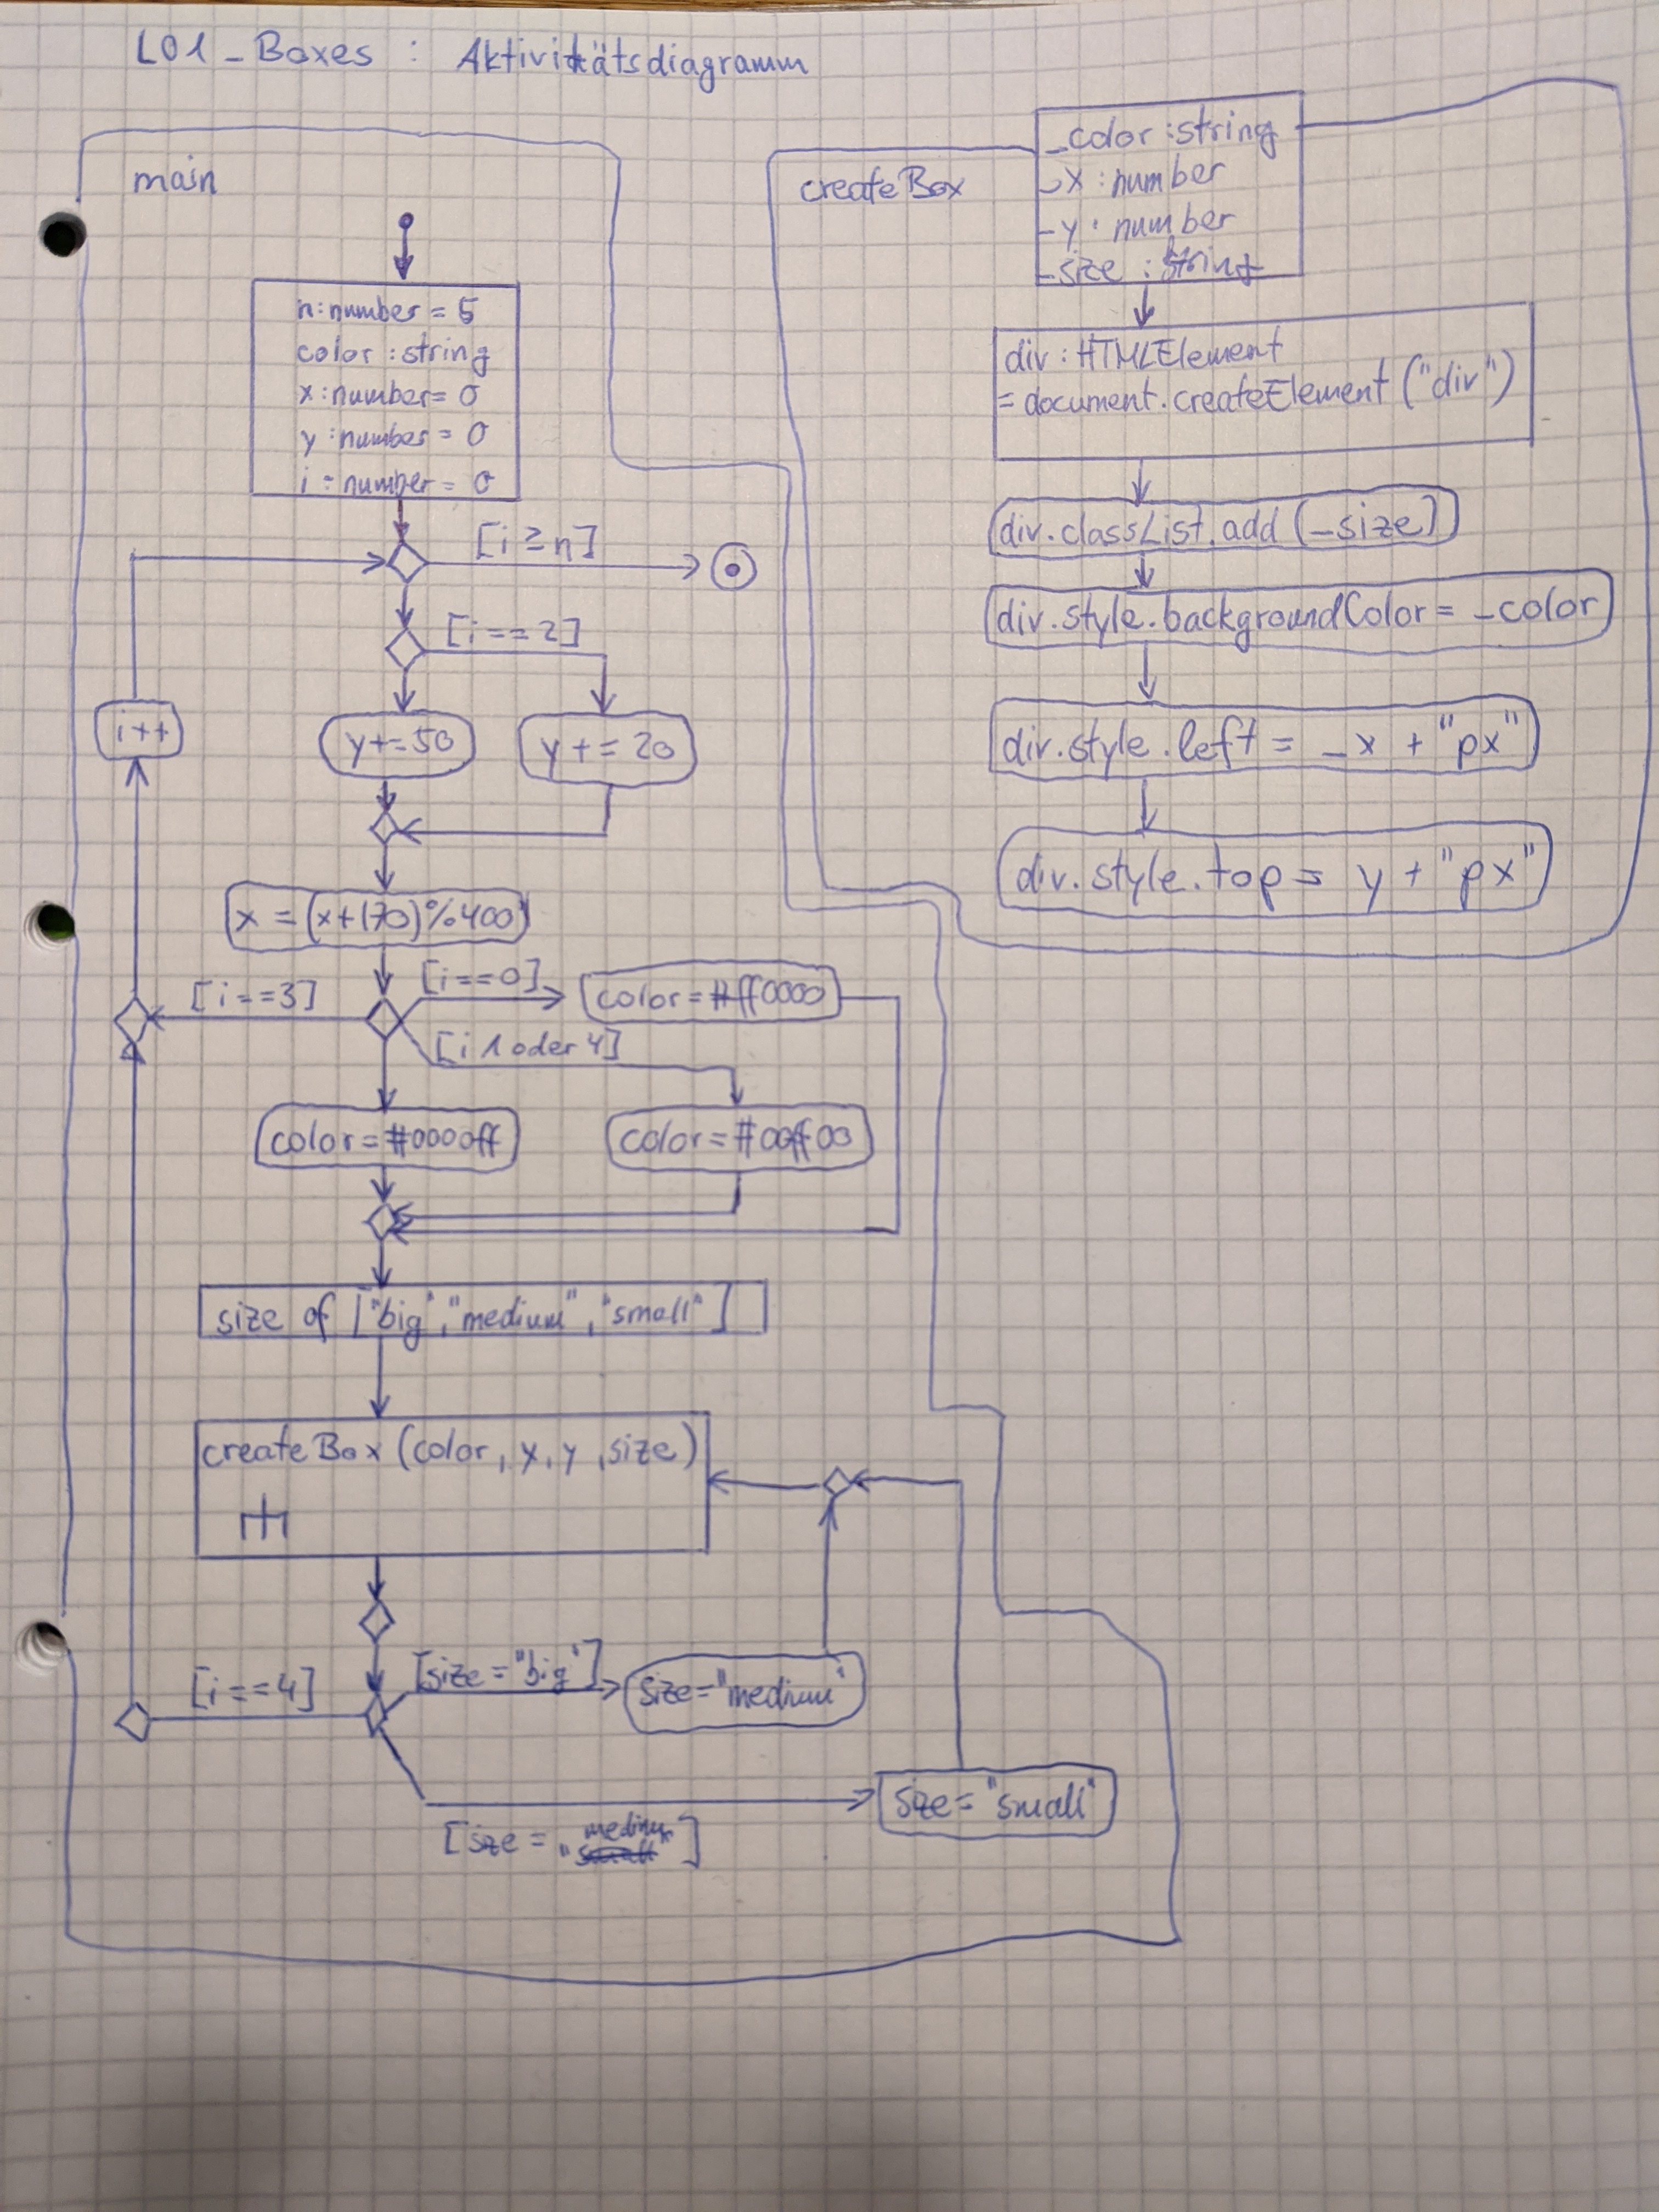 L01_Boxes : Aktivitätsdiagramm
main
n:number = 5
color :string
x:number= 0
y:number = 0
i:number = 0
[i≥n]
[i==2]
i++
y+=50
y+=20
x =(x+170)%400
[i==3]
[i==0]
color=#ff0000
[i 1 oder 4]
color=#0000ff
color=#00ff00
size of ["big","medium","small"]
createBox (color, x, y ,size)
[i==4]
[size ="big"]
size="medium"
size="small"
[size = "medium"]
createBox
_color :string
_x :number
_y : number
_size : string
div : HTMLElement
= document.createElement ("div")
div.classList.add (_size)
div.style.backgroundColor = _color
div.style.left = _x + "px"
div.style.top = y + "px"